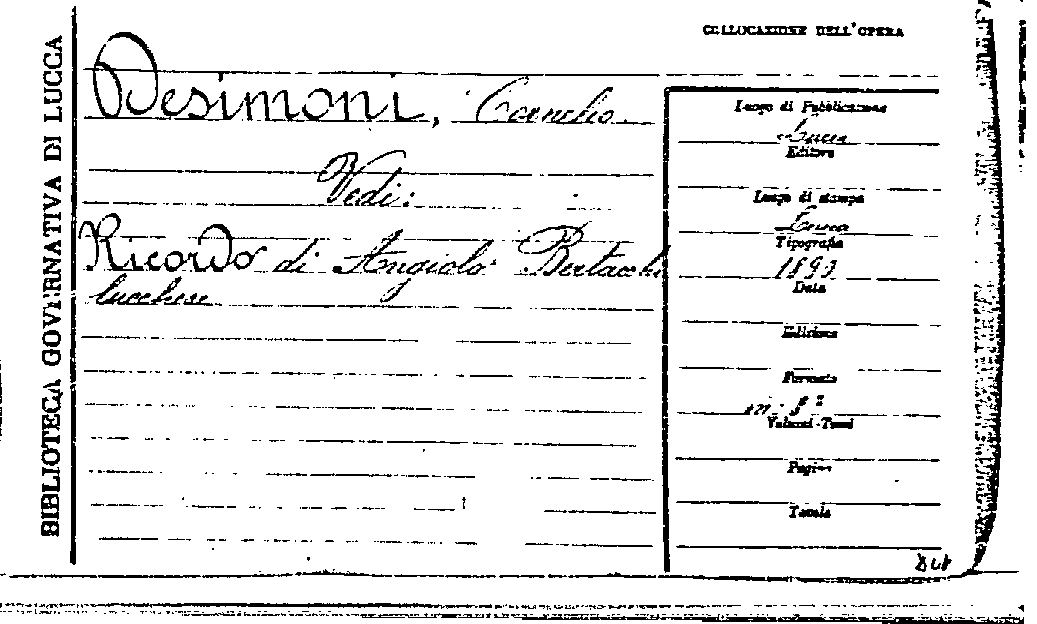 BIBLIOTECA GOVERNATIVA DI LUCCA
COLLOCAZIONE DELL'OPERA
Desimoni, Cornelio
Vedi:
Ricordo di Angiolo Bertacchi
lucchese
Luogo di Pubblicazione
Lucca
Editore
Luogo di stampa
Lucca
Tipografia
1893
Data
Edizione
Formato
in-8º
Volumi-Tomi
Pagine
Tavole